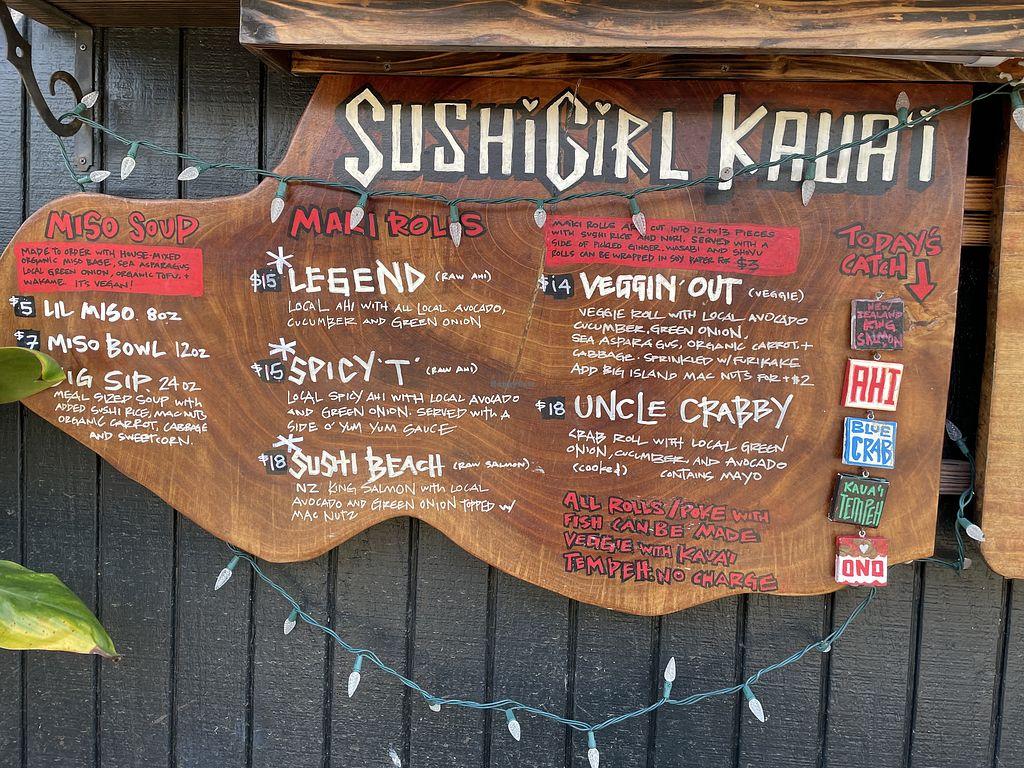 SUSHiGiRL KAUA'i
MISO SOUP
MADE TO ORDER WITH HOUSE-MIXED
ORGANIC MISO BASE, SEA ASPARAGUS,
LOCAL GREEN ONION, ORGANIC TOFU, +
WAKAME. IT'S VEGAN!
$5 LIL MISO 8oz
$7 MISO BOWL 12oz
IG SIP 24oz
MEAL SIZED SOUP WITH
ADDED SUSHI RICE, MAC NUTS,
ORGANIC CARROT, CABBAGE
AND SWEETCORN.
MAKI ROLLS
* $15 LEGEND (RAW AHI)
LOCAL AHI WITH ALL LOCAL AVOCADO,
CUCUMBER AND GREEN ONION
* $15 SPICY 'T' (RAW AHI)
LOCAL SPICY AHI WITH LOCAL AVOCADO
AND GREEN ONION. SERVED WITH A
SIDE O' YUM YUM SAUCE
* $18 SUSHI BEACH (RAW SALMON)
NZ KING SALMON WITH LOCAL
AVOCADO AND GREEN ONION TOPPED W/
MAC NUTZ
MAKI ROLLS ARE CUT INTO 12 to 13 PIECES
WITH SUSHI RICE AND NORI. SERVED WITH A
SIDE OF PICKLED GINGER, WASABI AND SHOYU
ROLLS CAN BE WRAPPED IN SOY PAPER FOR $3
$14 VEGGIN' OUT (VEGGIE)
VEGGIE ROLL WITH LOCAL AVOCADO
CUCUMBER, GREEN ONION,
SEA ASPARAGUS, ORGANIC CARROT, +
CABBAGE. SPRINKLED W/ FURIKAKE
ADD BIG ISLAND MAC NUTS FOR +$2
$18 UNCLE CRABBY
CRAB ROLL WITH LOCAL GREEN
ONION, CUCUMBER AND AVOCADO
(cooked) CONTAINS MAYO
ALL ROLLS/POKE WITH
FISH CAN BE MADE
VEGGIE WITH KAUA'I
TEMPEH. NO CHARGE
TODAY'S
CATCH
NEW
ZEALAND
KING
SALMON
AHI
BLUE
CRAB
KAUA'I
TEMPEH
ONO